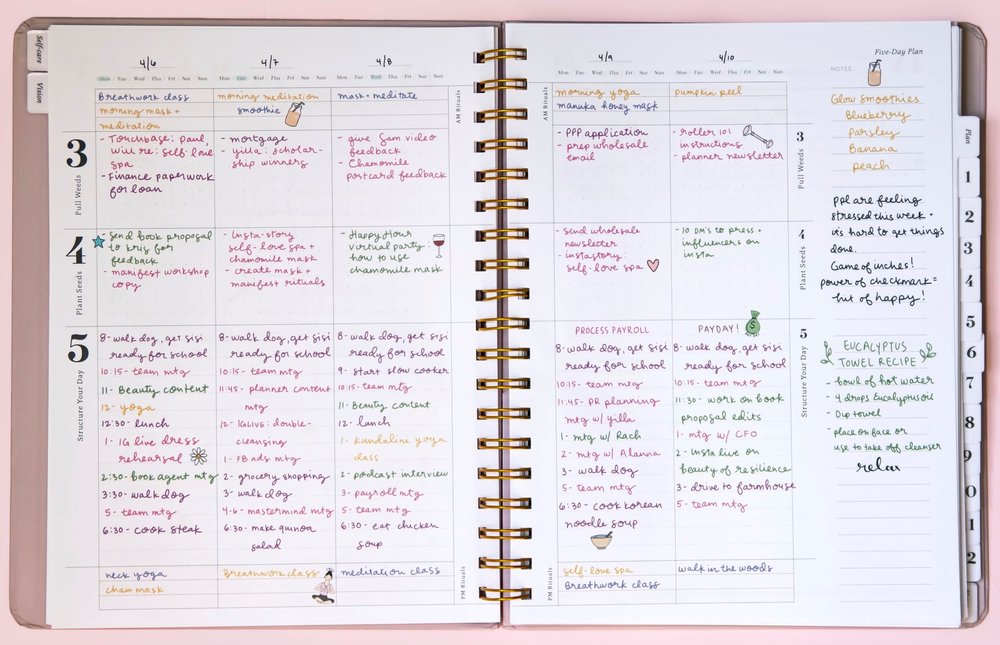 Self-care
Vision
4/6
Mon Tue Wed Thu Fri Sat Sun
4/7
Mon Tue Wed Thu Fri Sat Sun
4/8
Mon Tue Wed Thu Fri Sat Sun
AM Rituals
Breathwork class
morning mask +
meditation
morning meditation
smoothie
mask + meditate
3
Pull Weeds
- Touchbase: Paul,
Will re: self-love
spa
- Finance paperwork
for loan
- mortgage
- yilla: scholar-
ship winners
- give Sam video
feedback
- Chamomile
postcard feedback
4
Plant Seeds
- Send book proposal
to kris for
feedback
- manifest workshop
copy
- Insta-story
self-love spa +
chamomile mask
- create mask +
manifest rituals
- Happy Hour
virtual party:
how to use
chamomile mask
5
Structure Your Day
8- walk dog, get sisi
ready for school
10:15- team mtg
11- Beauty content
12- yoga
12:30- lunch
1- IG live dress
rehearsal
2:30- book agent mtg
3:30- walk dog
5- team mtg
6:30- cook steak
8- walk dog, get sisi
ready for school
10:15- team mtg
11:45- planner content
mtg
12- IGLIVE: double-
cleansing
1- FB ads mtg
2- grocery shopping
3- walk dog
4-6- mastermind mtg
6:30- make quinoa
salad
8- walk dog, get sisi
ready for school
9- start slow cooker
10:15- team mtg
11- Beauty content
12- lunch
1- Kundalini yoga
class
2- podcast interview
3- payroll mtg
5- team mtg
6:30- eat chicken
soup
PM Rituals
neck yoga
cham mask
Breathwork class
meditation class
Five-Day Plan
4/9
Mon Tue Wed Thu Fri Sat Sun
4/10
Mon Tue Wed Thu Fri Sat Sun
AM Rituals
morning yoga
manuka honey mask
pumpkin peel
3
Pull Weeds
- PPP application
- prep wholesale
email
- roller 101
instructions
- planner newsletter
4
Plant Seeds
- Send wholesale
newsletter
- instastory:
self-love spa
- 10 DM's to press +
influencers on
insta
5
Structure Your Day
PROCESS PAYROLL
8- walk dog, get sisi
ready for school
10:15- team mtg
11:45- PR planning
mtg w/ yilla
1- mtg w/ Rach
2- mtg w/ Alanna
3- walk dog
5- team mtg
6:30- cook korean
noodle soup
PAYDAY!
$
8- walk dog, get sisi
ready for school
10:15- team mtg
11:30- work on book
proposal edits
1- mtg w/ CFO
2- Insta live on
beauty of resilience
3- drive to farmhouse
5- team mtg
PM Rituals
self-love spa
Breathwork class
walk in the woods
NOTES
Glow smoothies
Blueberry
Parsley
Banana
peach
ppl are feeling
stressed this week +
it's hard to get things
done.
Game of inches!
power of checkmark =
hit of happy!
EUCALYPTUS
TOWEL RECIPE
- bowl of hot water
- 4 drops Eucalyptus oil
- Dip towel
- place on face or
use to take off cleanser
relax
Plan
1
2
3
4
5
6
7
8
9
0
1
2